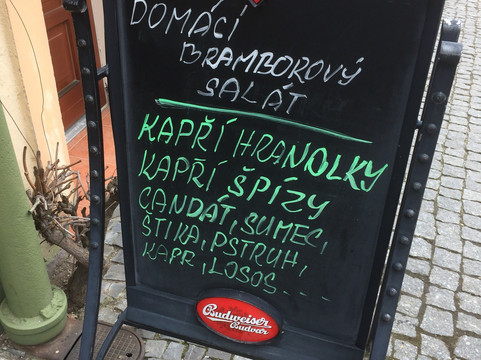 DOMÁCÍ
BRAMBOROVÝ
SALÁT
KAPŘÍ HRANOLKY
KAPŘÍ ŠPÍZY
CANDÁT, SUMEC,
ŠTIKA, PSTRUH,
KAPR, LOSOS ....
Budweiser
Budvar